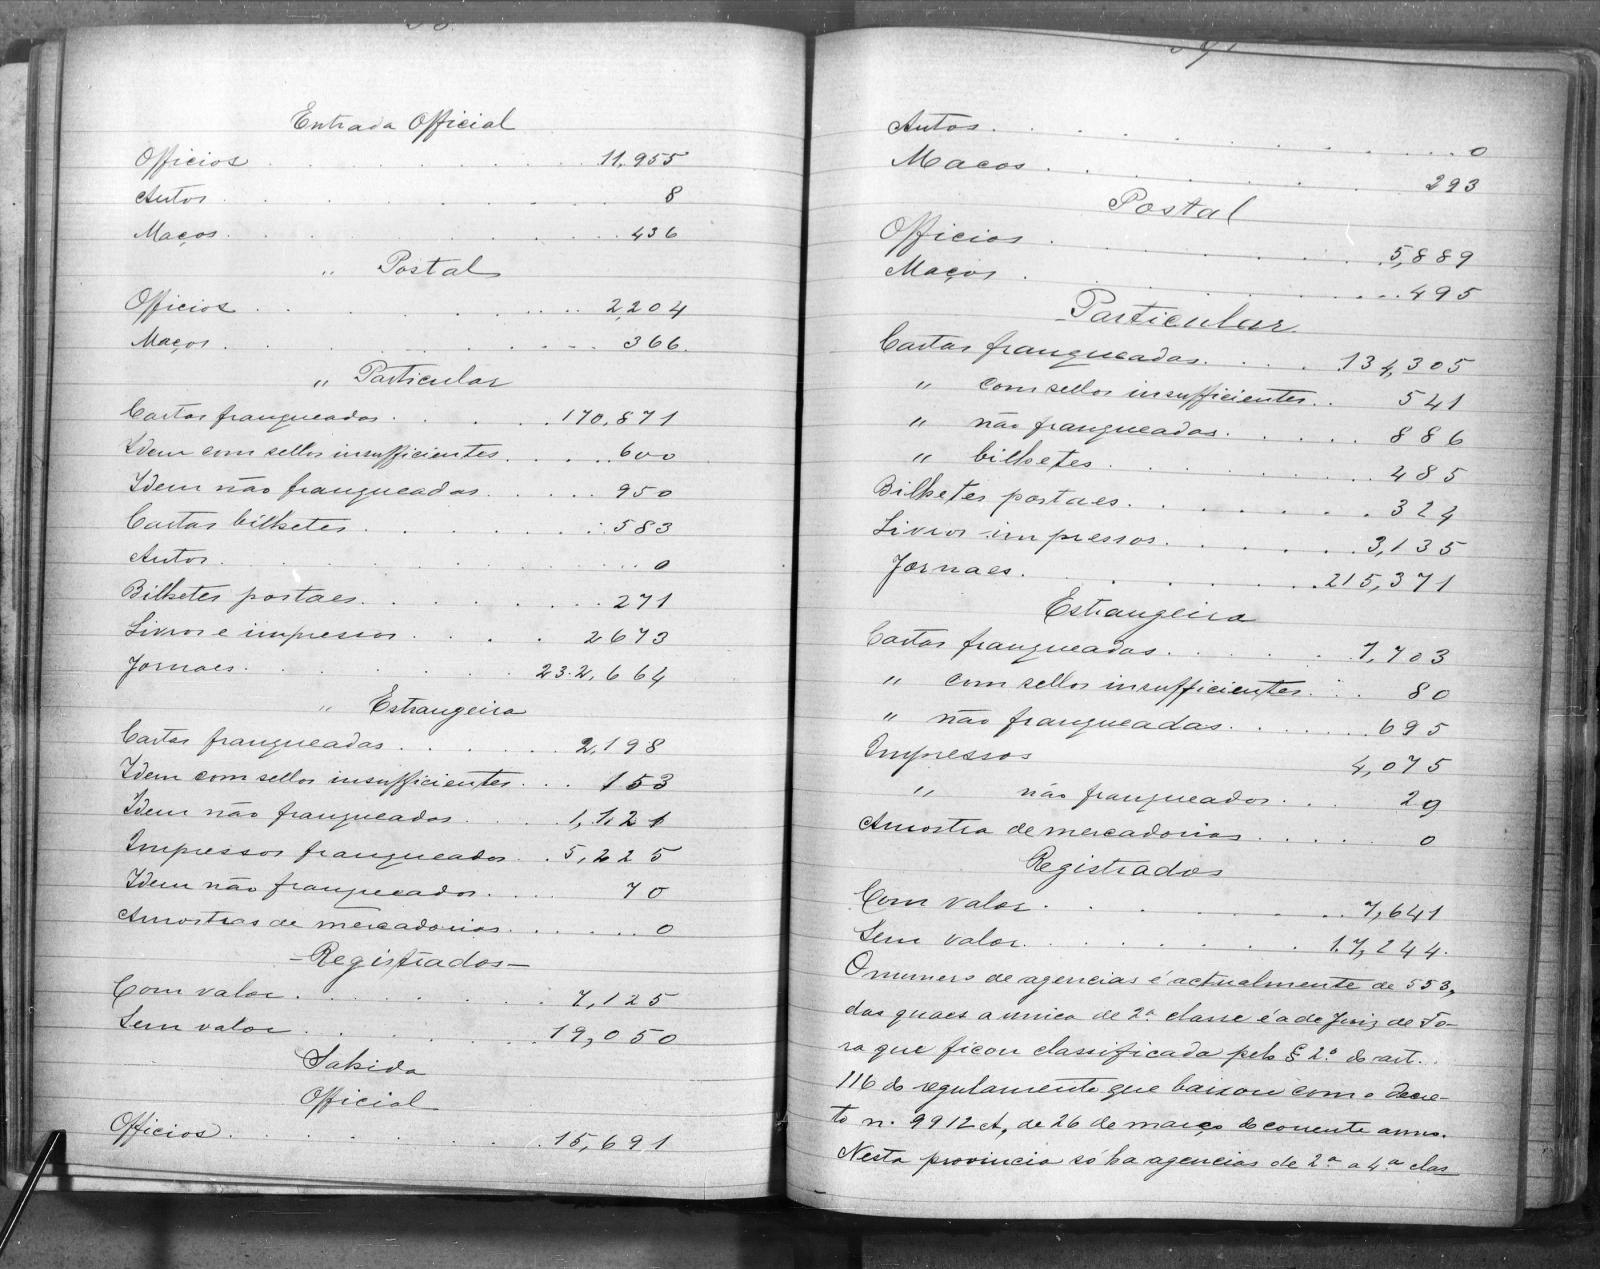 Entrada Official
Officios . . . . . . . . . 11,955
Autos . . . . . . . . . 8
Maços . . . . . . . . . 436
" Postal
Officios . . . . . . . . . 2,204
Maços . . . . . . . . . 366.
" Particular
Cartas franqueadas . . . . . 170,871
Idem com sellos insufficientes . . . . . 600
Idem não franqueadas . . . . . 950
Cartas bilhetes . . . . . . 583
Autos . . . . . . . . . 0
Bilhetes postaes . . . . . . . 271
Livros e impressos . . . . 2673
Jornaes . . . . . . . 232,664
" Estrangeira
Cartas franqueadas . . . . . 2,198
Idem com sellos insufficientes . . . 153
Idem não franqueadas . . . . 1,121
Impressos franqueados . . 5,225
Idem não franqueados . . . . 70
Amostras de mercadorias . . . . . . 0
-Registrados-
Com valor . . . . . . . . 7,125
Sem valor . . . . . . . . 19,050
Sahida
Official
Officios . . . . . . . . . 15,691
Autos . . . . . . . . . 0
Macos . . . . . . . . 293
Postal
Officios . . . . . . . . 5,889
Maços . . . . . . . . . 495
Particular
Cartas franqueadas . . . . 134,305
" com sellos insufficientes . . 541
" não franqueadas . . . . . 886
" bilhetes . . . . . . . 485
Bilhetes postaes . . . . . . . 324
Livros impressos . . . . . . 3,135
Jornaes . . . . . . . . 215,371
Estrangeira
Cartas franqueadas . . . . . 7,703
" com sellos insufficientes . . . 80
" não franqueadas . . . . . . 695
Impressos 4,075
" não franqueados . . . 29
Amostra de mercadorias . . . . . 0
Registrados
Com valor . . . . . . . . 7,641
Sem valor . . . . . . . 17,244.
O numero de agencias é actualmente de 553,
das quaes a unica de 2ª classe é a de Juiz de Fo-
ra que ficou classificada pelo § 2º do art.
116 do regulamento que baixou com o Decre-
to n. 9912 A, de 26 de março do corrente anno.
Nesta provincia só ha agencias de 2ª a 4ª clas